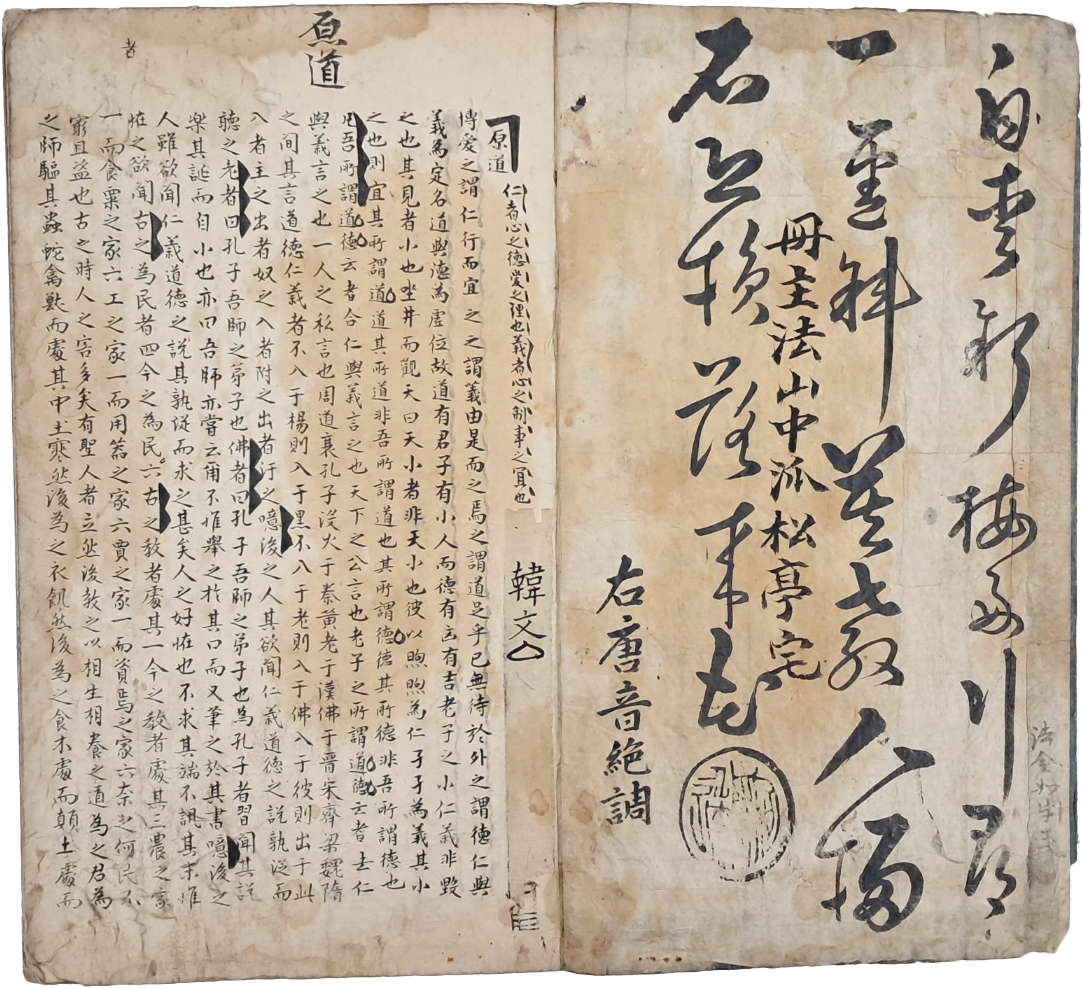 自愛新梅好行尋
一徑斜莫教人掃
石恐損落來花
冊主法山中泒松亭宅
右唐音絶調
原道
者
原道
仁者心之德愛之理也義者心之制事之宜也
韓文
博愛之謂仁行而宜之之謂義由是而之焉之謂道足乎已無待於外之謂德仁與
義為定名道與德為虛位故道有君子有小人而德有凶有吉老子之小仁義非毀
之也其見者小也坐井而觀天曰天小者非天小也彼以煦煦為仁孑孑為義其小
之也則宜其所謂道道其所道非吾所謂道也其所謂德德其所德非吾所謂德也
凡吾所謂道德云者合仁與義言之也天下之公言也老子之所謂道德云者去仁
與義言之也一人之私言也周道衰孔子沒火于秦黃老于漢佛于晉宋齊梁魏隋
之間其言道德仁義者不入于楊則入于墨不入于老則入于佛入于彼則出于此
入者主之出者奴之入者附之出者汙之噫後之人其欲聞仁義道德之說孰從而
聽之老者曰孔子吾師之弟子也佛者曰孔子吾師之弟子也為孔子者習聞其說
樂其誕而自小也亦曰吾師亦嘗云爾不惟舉之於其口而又筆之於其書噫後之
人雖欲聞仁義道德之說其孰從而求之甚矣人之好恠也不求其端不訊其末惟
恠之欲聞古之為民者四今之為民六古之教者處其一今之教者處其三農之家
一而食粟之家六工之家一而用器之家六賈之家一而資焉之家六奈之何民不
窮且盜也古之時人之害多矣有聖人者立然後教之以相生相養之道為之君為
之師驅其蟲蛇禽獸而處其中土寒然後為之衣飢然後為之食木處而顛土處而